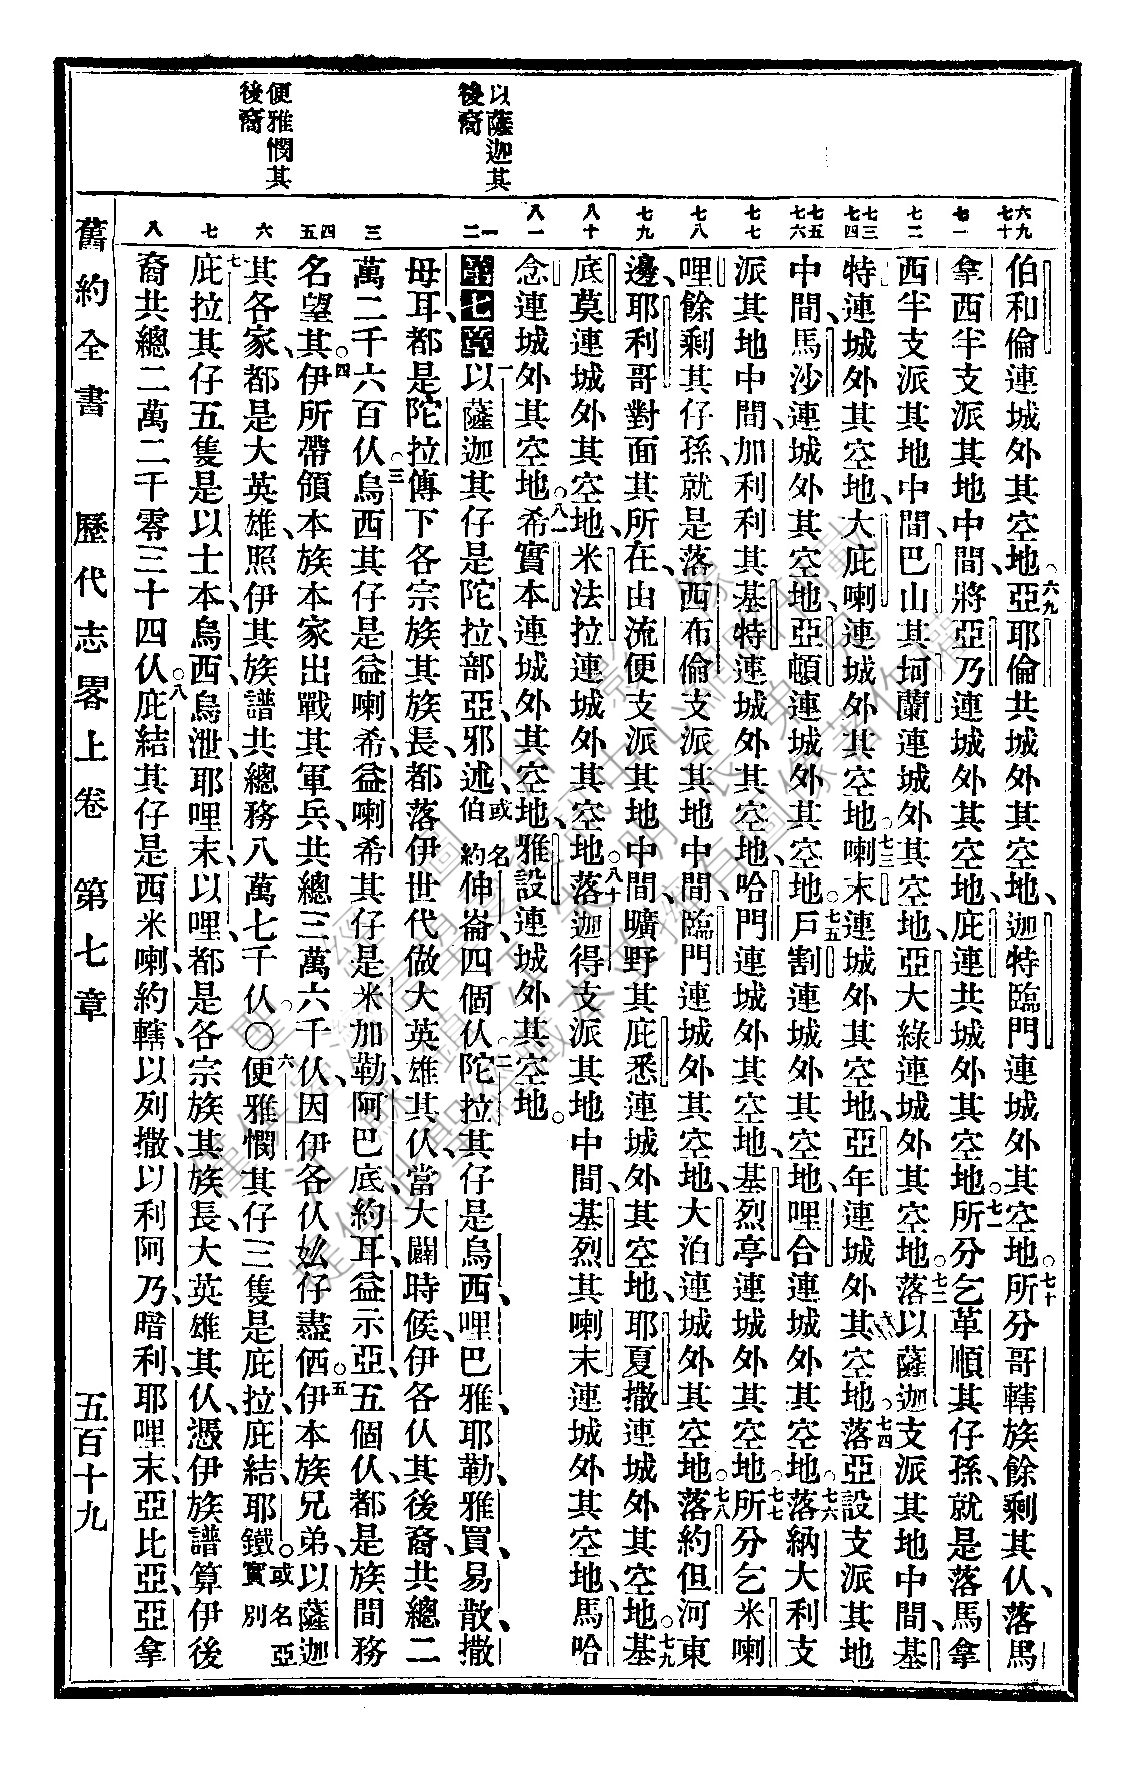 以薩迦其
後裔
便雅憫其
後裔
六九
七十
七一
七二
七三
七四
七五
七六
七七
七八
七九
八十
八一
一
二
三
四
五
六
七
八
伯和倫連城外其空地。六九亞耶倫共城外其空地、迦特臨門連城外其空地。七十所分哥轄族餘剩其仫、落馬
拿西半支派其地中間、將亞乃連城外其空地、庇連共城外其空地。七一所分乞革順其仔孫、就是落馬拿
西半支派其地中間、巴山其坷蘭連城外其空地、亞大綠連城外其空地。七二落以薩迦支派其地中間、基
特連城外其空地、大庇喇連城外其空地。七三喇末連城外其空地、亞年連城外其空地。七四落亞設支派其地
中間、馬沙連城外其空地、亞頓連城外其空地。七五戶割連城外其空地、哩合連城外其空地。七六落納大利支
派其地中間、加利利其基特連城外其空地、哈門連城外其空地、基烈亭連城外其空地。七七所分乞米喇
哩餘剩其仔孫、就是落西布倫支派其地中間、臨門連城外其空地、大泊連城外其空地。七八落約但河東
邊、耶利哥對面其所在、由流便支派其地中間、曠野其庇悉連城外其空地、耶夏撒連城外其空地。七九基
底莫連城外其空地、米法拉連城外其空地。八十落迦得支派其地中間、基烈其喇末連城外其空地、馬哈
念連城外其空地。八一希實本連城外其空地、雅設連城外其空地。
第七章一以薩迦其仔是陀拉、部亞、邪述或名伯約伸崙四個仫。二陀拉其仔是烏西、哩巴雅、耶勒、雅買、易散、撒
母耳、都是陀拉傳下各宗族其族長、都落伊世代做大英雄其仫、當大闢時候、伊各仫其後裔、共總二
萬二千六百仫。三烏西其仔是益喇希、益喇希其仔是米加勒、阿巴底、約耳、益示亞、五個仫、都是族間務
名望其。四伊所帶領本族本家出戰其軍兵、共總三萬六千仫、因伊各仫妐仔盡価。五伊本族兄弟、以薩迦
其各家、都是大英雄、照伊其族譜共總務八萬七千仫。〇六便雅憫其仔三隻、是庇拉、庇結、耶鐵。或名亞實別
七庇拉其仔五隻、是以士本、烏西、烏泄、耶哩末、以哩、都是各宗族其族長、大英雄其仫、憑伊族譜算、伊後
裔共總二萬二千零三十四仫。八庇結其仔是西米喇、約轄、以列撒、以利阿乃、暗利、耶哩末、亞比亞、亞拿
舊約全書　歷代志畧上卷　第七章　五百十九